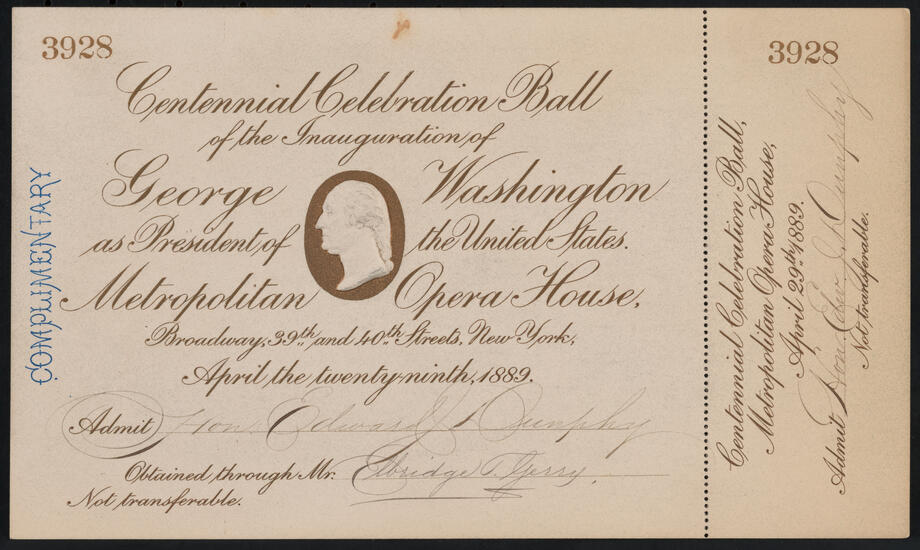 3928
Centennial Celebration Ball
of the Inauguration of
George Washington
as President of the United States.
Metropolitan Opera House,
Broadway, 39th and 40th Streets, New York,
April the twenty-ninth, 1889.
Admit Hon. Edward J. Dunphy
Obtained through Mr. Elbridge T. Gerry.
Not transferable.
COMPLIMENTARY
3928
Centennial Celebration Ball,
Metropolitan Opera House,
April 29th 1889.
Admit Hon. Edw. J. Dunphy
Not transferable.